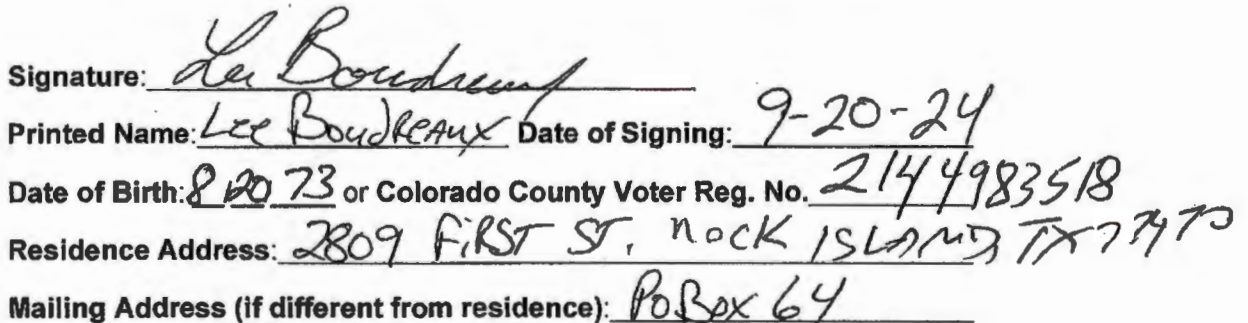 Signature: Lee Boudreaux
Printed Name: Lee BoudReAux Date of Signing: 9-20-24
Date of Birth: 8 20 73 or Colorado County Voter Reg. No. 2144983518
Residence Address: 2809 FiRST ST, nock ISLAND, TX 77470
Mailing Address (if different from residence): Po Box 64